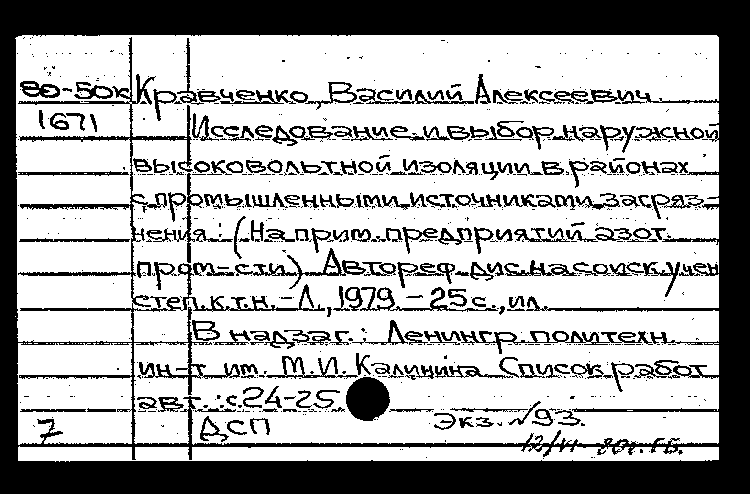 80-50к Кравченко, Василий Алексеевич.
1671 Исследование и выбор наружной
высоковольтной изоляции в районах
с промышленными источниками загряз-
нения : (На прим. предприятий азот.
пром-сти). Автореф. дис. на соиск. учен
степ. к.т.н. - Л., 1979. - 25 с., ил.
В надзаг. : Ленингр. политехн.
ин-т им. М.И. Калинина. Список работ
авт. : с. 24-25
7 ДСП Экз. №93.
12/VI - 80г. ГБ.